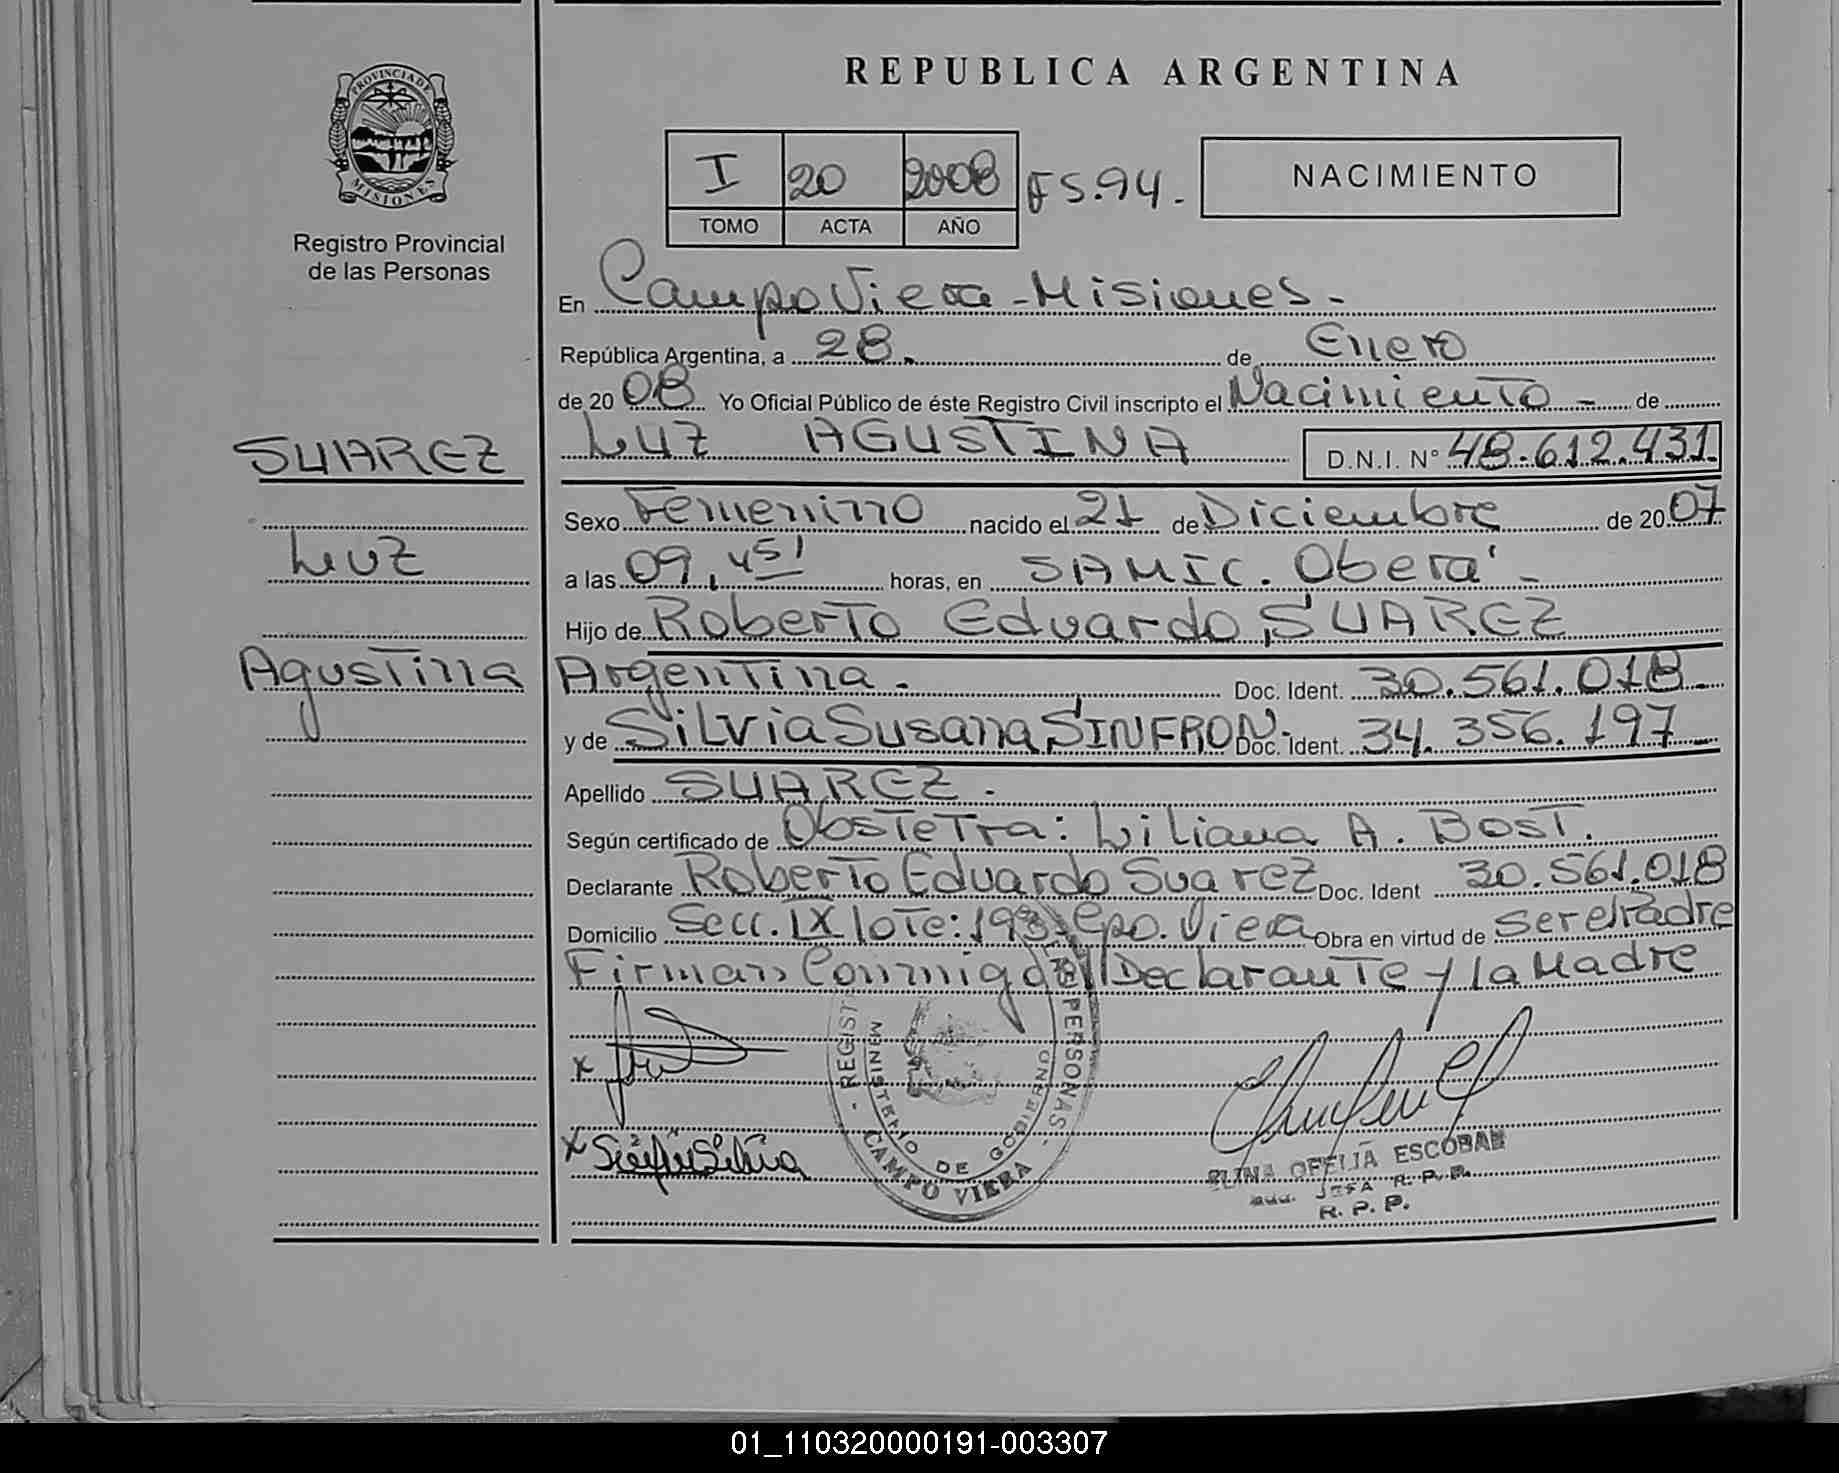 PROVINCIA DE
MISIONES
Registro Provincial
de las Personas
SUAREZ
Luz
Agustina
REPUBLICA ARGENTINA
I 20 2008 FS.94.-
TOMO ACTA AÑO
NACIMIENTO
En Campo Viera - Misiones -
República Argentina, a 28. de Enero
de 20 08 Yo Oficial Público de éste Registro Civil inscripto el Nacimiento - de
LUZ AGUSTINA D.N.I. N° 48.612.431.
Sexo Femenino nacido el 21 de Diciembre de 20 07
a las 09,45' horas, en SAMIC. Oberá -
Hijo de Roberto Eduardo SUAREZ
Argentina. Doc. Ident. 30.561.018
y de Silvia Susana SINFRON. Doc. Ident. 34.356.197
Apellido SUAREZ.
Según certificado de Obstetra: Liliana A. Bost.
Declarante Roberto Eduardo Suarez Doc. Ident 30.561.018
Domicilio Secc. IX lote: 193 Cpo. Viera Obra en virtud de ser el Padre
Firman Conmigo el Declarante y la Madre
REGIST PERSONAS
MINISTERIO DE GOBIERNO
CAMPO VIERA
x
x Silvia
OFELIA ESCOBAR
JEFA R.P.P.
R. P. P.
01_110320000191-003307